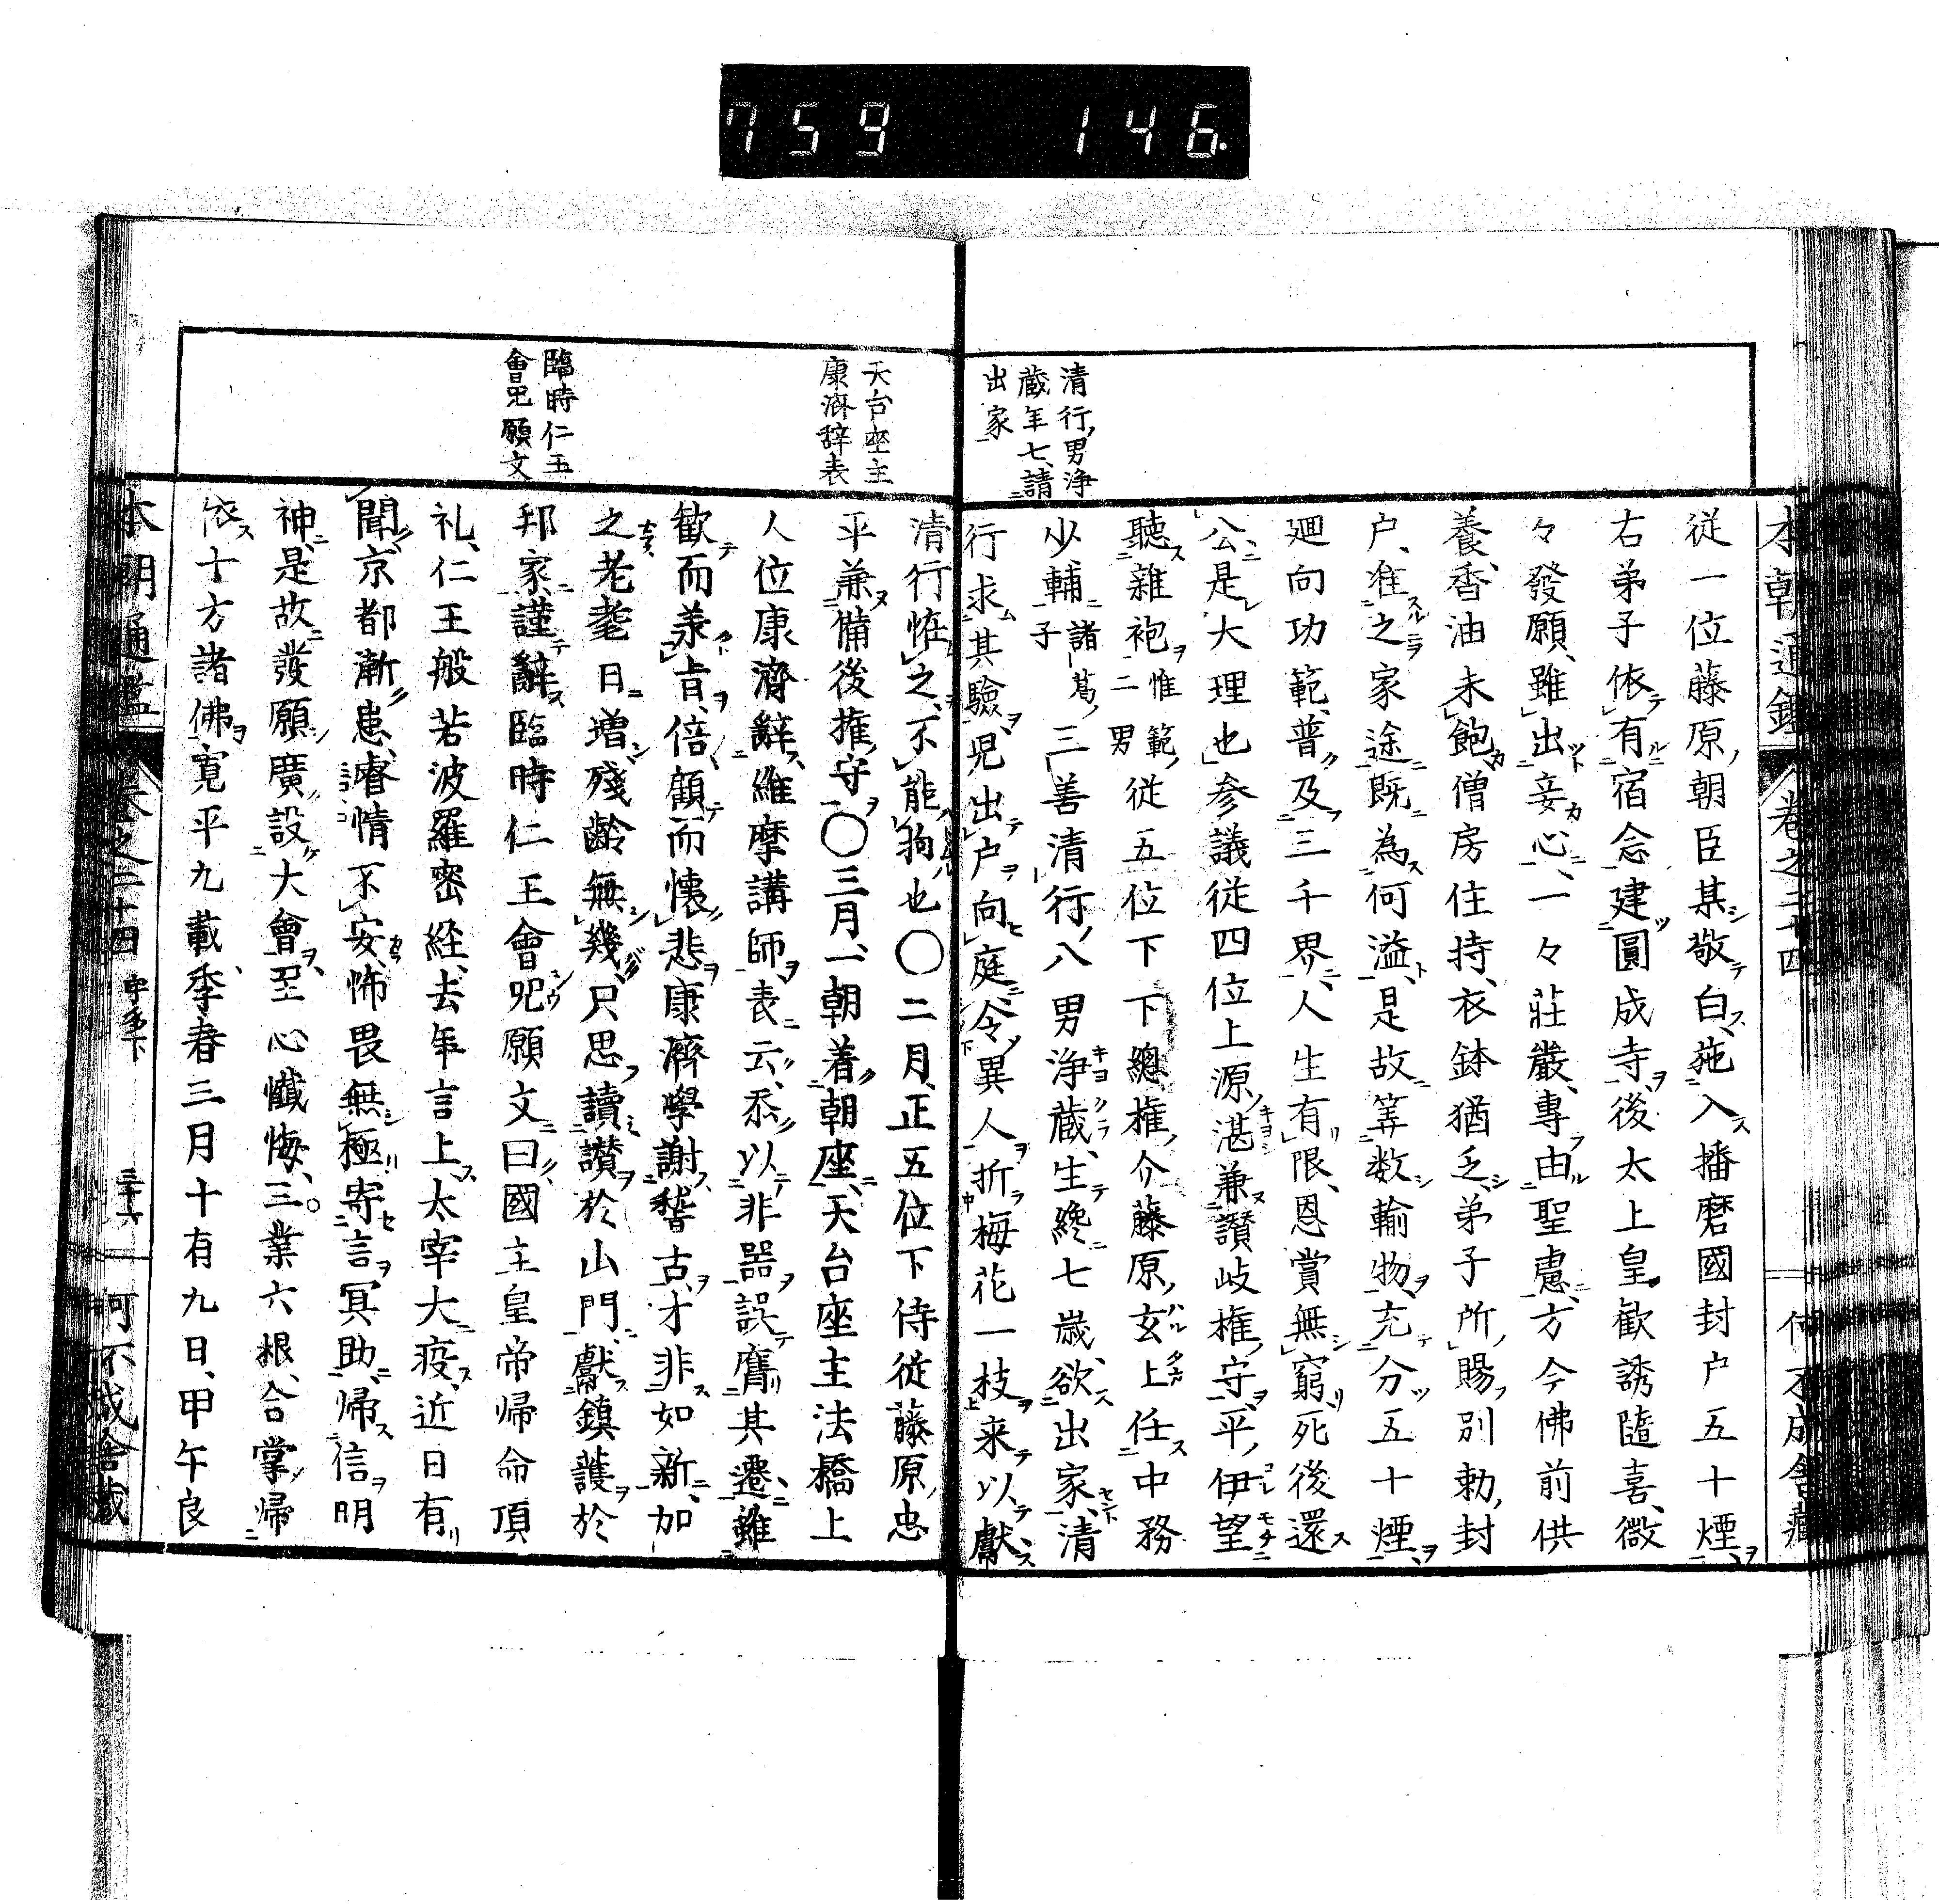 759 146.
本朝通鑑 卷之二十四 何不成舎藏
清行男浄
蔵年七請
出家
従一位藤原朝臣某敬白施入播磨國封户五十煙
右弟子依有宿念建圓成寺後太上皇歓誘隨喜微
々發願雖出妾心一々莊嚴專由聖慮方今佛前供
養香油未飽僧房住持衣鉢猶乏弟子所賜別勅封
户准之家途既為何溢是故筭数輸物充分五十煙
廻向功範普及三千界人生有限恩賞無窮死後還
公是大理也參議従四位上源湛兼讃岐権守平伊望
聽雜袍惟範二男従五位下下總権介藤原玄上任中務
少輔諸葛子三善清行八男浄蔵生纔七歳欲出家清
行求其驗児出户向庭令異人折梅花一枝来以獻
清行恠之不能拘也〇二月正五位下侍従藤原忠
平兼備後権守〇三月一朝着朝座天台座主法橋上
人位康濟辭維摩講師表云忝以非器誤膺其選雖
歓而羕旨倍顧而懐悲康濟學謝稽古才非如新加
之老耄日增殘齡無幾只思讀讃於山門獻鎮護於
邦家謹辭臨時仁王會咒願文曰國主皇帝帰命頂
礼仁王般若波羅密経去年言上太宰大疫近日有
聞京都漸患睿情不安怖畏無極寄言冥助帰信明
神是故發願廣設大會至心懺悔三業六根合掌帰
依十方諸佛寛平九載季春三月十有九日甲午良
天台座主
康濟辞表
臨時仁王
會咒願文
本朝通鑑 卷之二十四 三十六 何不成舎藏